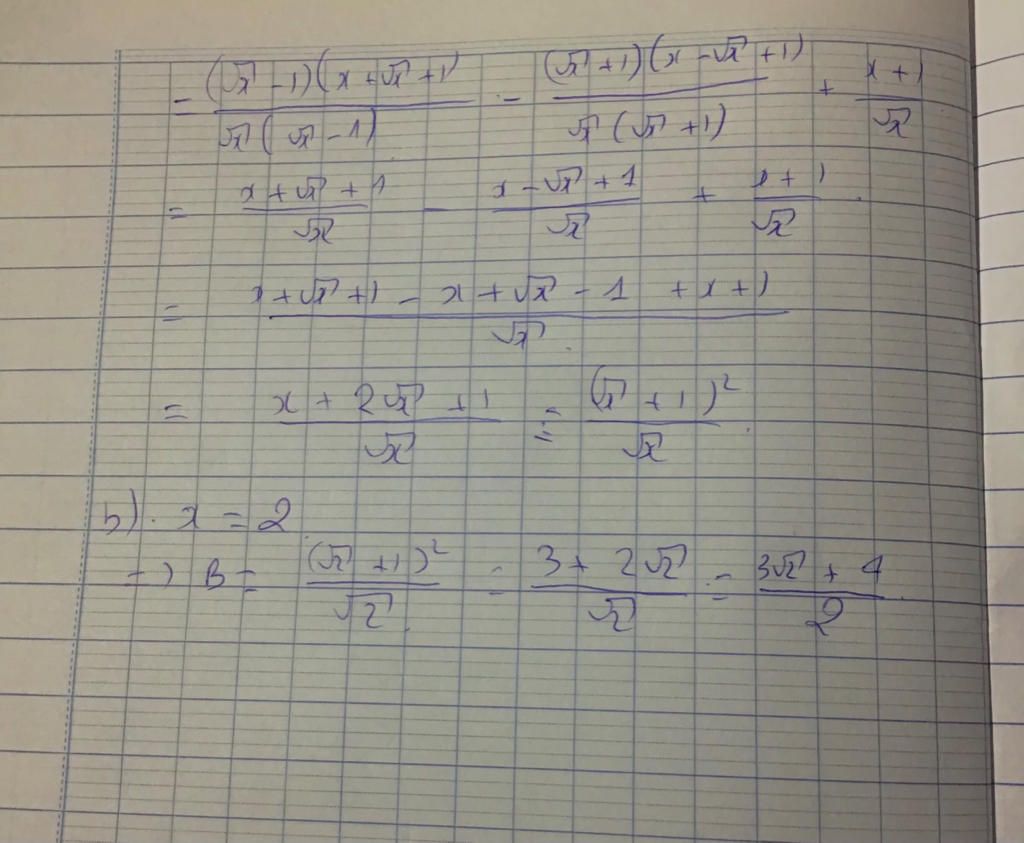 = (√x - 1)(x + √x + 1) / √x(√x - 1) - (√x + 1)(x - √x + 1) / √x(√x + 1) + x + 1 / √x
= x + √x + 1 / √x - x - √x + 1 / √x + x + 1 / √x
= x + √x + 1 - x + √x - 1 + x + 1 / √x
= x + 2√x + 1 / √x = (√x + 1)² / √x
b) x = 2
=) B = (√2 + 1)² / √2 = 3 + 2√2 / √2 = 3√2 + 4 / 2